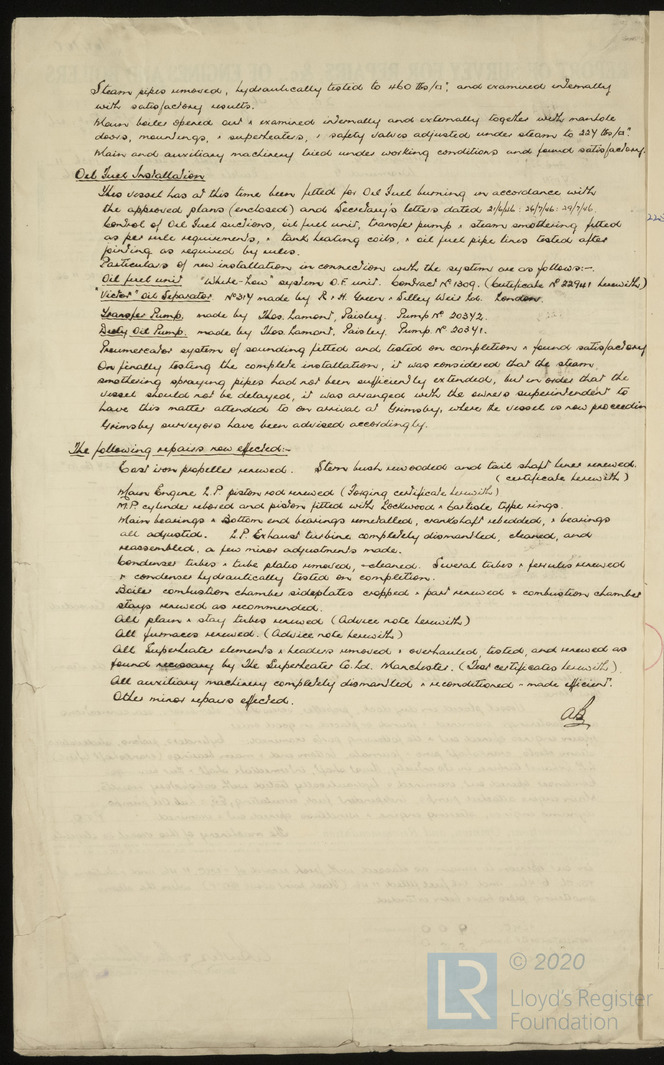 Steam pipes removed, hydraulically tested to 460 lbs/□", and examined internally
with satisfactory results.
Main boiler opened out & examined internally and externally together with manhole
doors, mountings, & superheaters, & safety valves adjusted under steam to 227 lbs/□"
Main and auxiliary machinery tried under working conditions and found satisfactory.
Oil Fuel Installation
This vessel has at this time been fitted for Oil Fuel burning in accordance with
the approved plans (enclosed) and Secretary's letters dated 21/6/46 : 26/7/46 : 29/7/46.
Control of Oil Fuel suctions, oil fuel unit, transfer pump & steam smothering fitted
as per rule requirements, & tank heating coils, & oil fuel pipe lines tested after
jointing as required by rules.
Particulars of new installation in connection with the system are as follows:-.
Oil fuel unit "White-Low" system O.F. unit. Contract No 1309. (Certificate No 22941 herewith)
"Victor" Oil Separator No 317 made by R & H. Green & Silley Weir Ltd. London.
Transfer Pump. made by Thos. Lamont, Paisley. Pump No 20342.
Dirty Oil Pump. made by Thos. Lamont, Paisley. Pump No 20341.
Pneumercator system of sounding fitted and tested on completion & found satisfactory
On finally testing the complete installation, it was considered that the steam
smothering spraying pipes had not been sufficiently extended, but in order that the
vessel should not be delayed, it was arranged with the owners superintendent to
have this matter attended to on arrival at Grimsby, where the vessel is now proceedin
Grimsby surveyors have been advised accordingly.
The following repairs now effected:-
Cast iron propeller renewed. Stern bush rewooded and tail shaft liner renewed.
(certificate herewith)
Main Engine L.P. piston rod renewed (Forging certificate herewith)
M.P. cylinder rebored and piston fitted with Lockwood & Carlisle type rings.
Main bearings & Bottom end bearings remetalled, crankshaft rebedded, & bearings
all adjusted. L.P. Exhaust turbine completely dismantled, cleaned, and
reassembled, a few minor adjustments made.
Condenser tubes & tube plates removed, & cleaned. Several tubes & ferrules renewed
& condenser hydraulically tested on completion.
Boiler combustion chamber sideplates cropped & part renewed & combustion chamber
stays renewed as recommended.
All plain & stay tubes renewed (Advice note herewith)
All furnaces renewed. (Advice note herewith)
All Superheater elements & headers removed & overhauled, tested, and renewed as
found necessary by The Superheater Co. Ltd. Manchester. (Test certificates herewith).
All auxiliary machinery completely dismantled & reconditioned & made efficient.
Other minor repairs effected.
AB
LR
© 2020
Lloyd's Register
Foundation